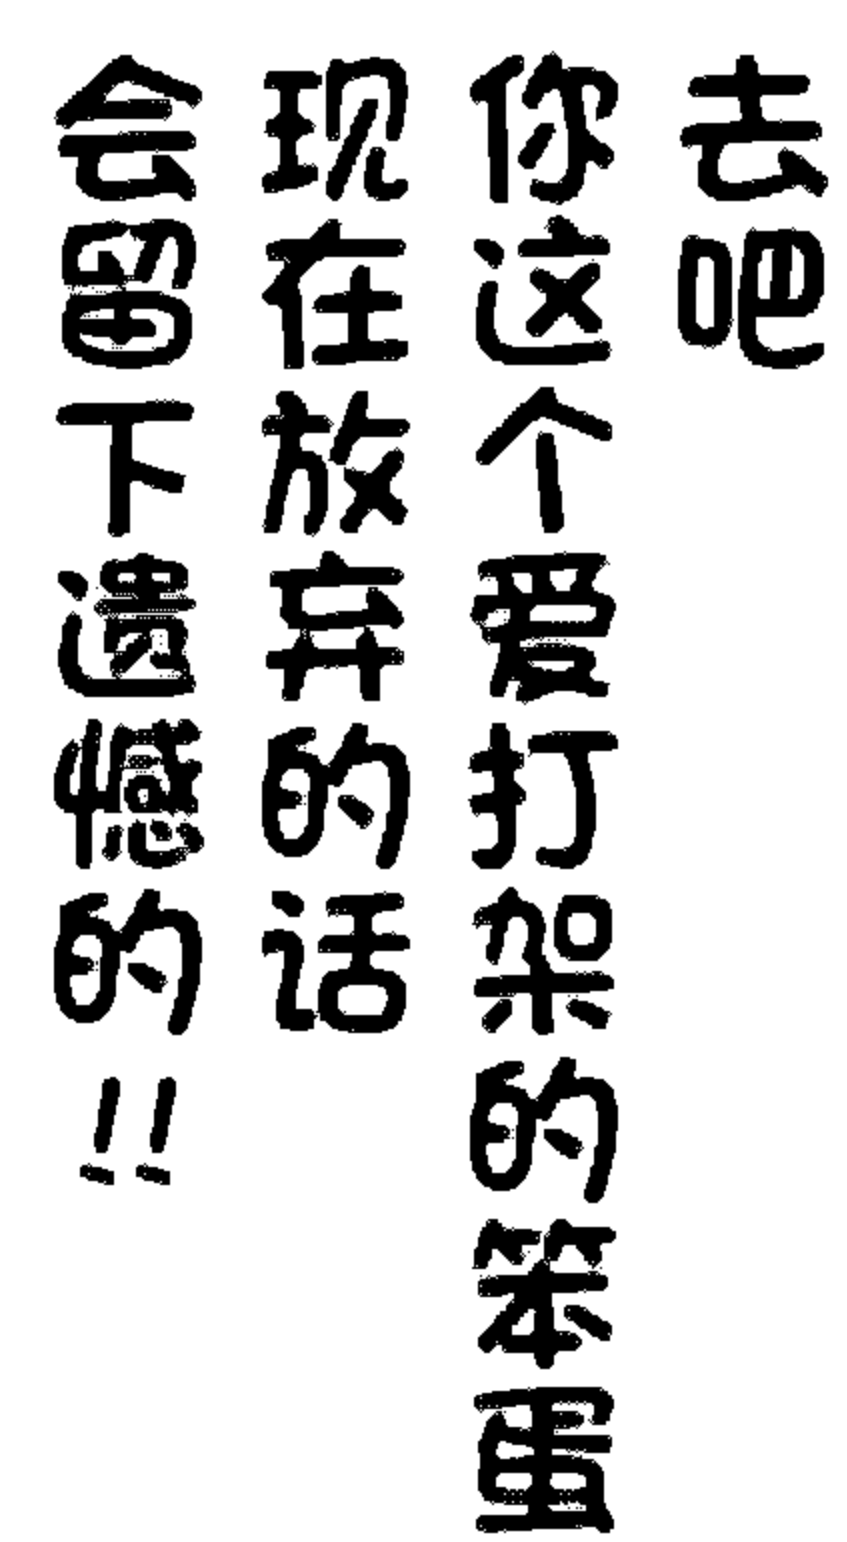 去吧
你这个爱打架的笨蛋
现在放弃的话
会留下遗憾的!!